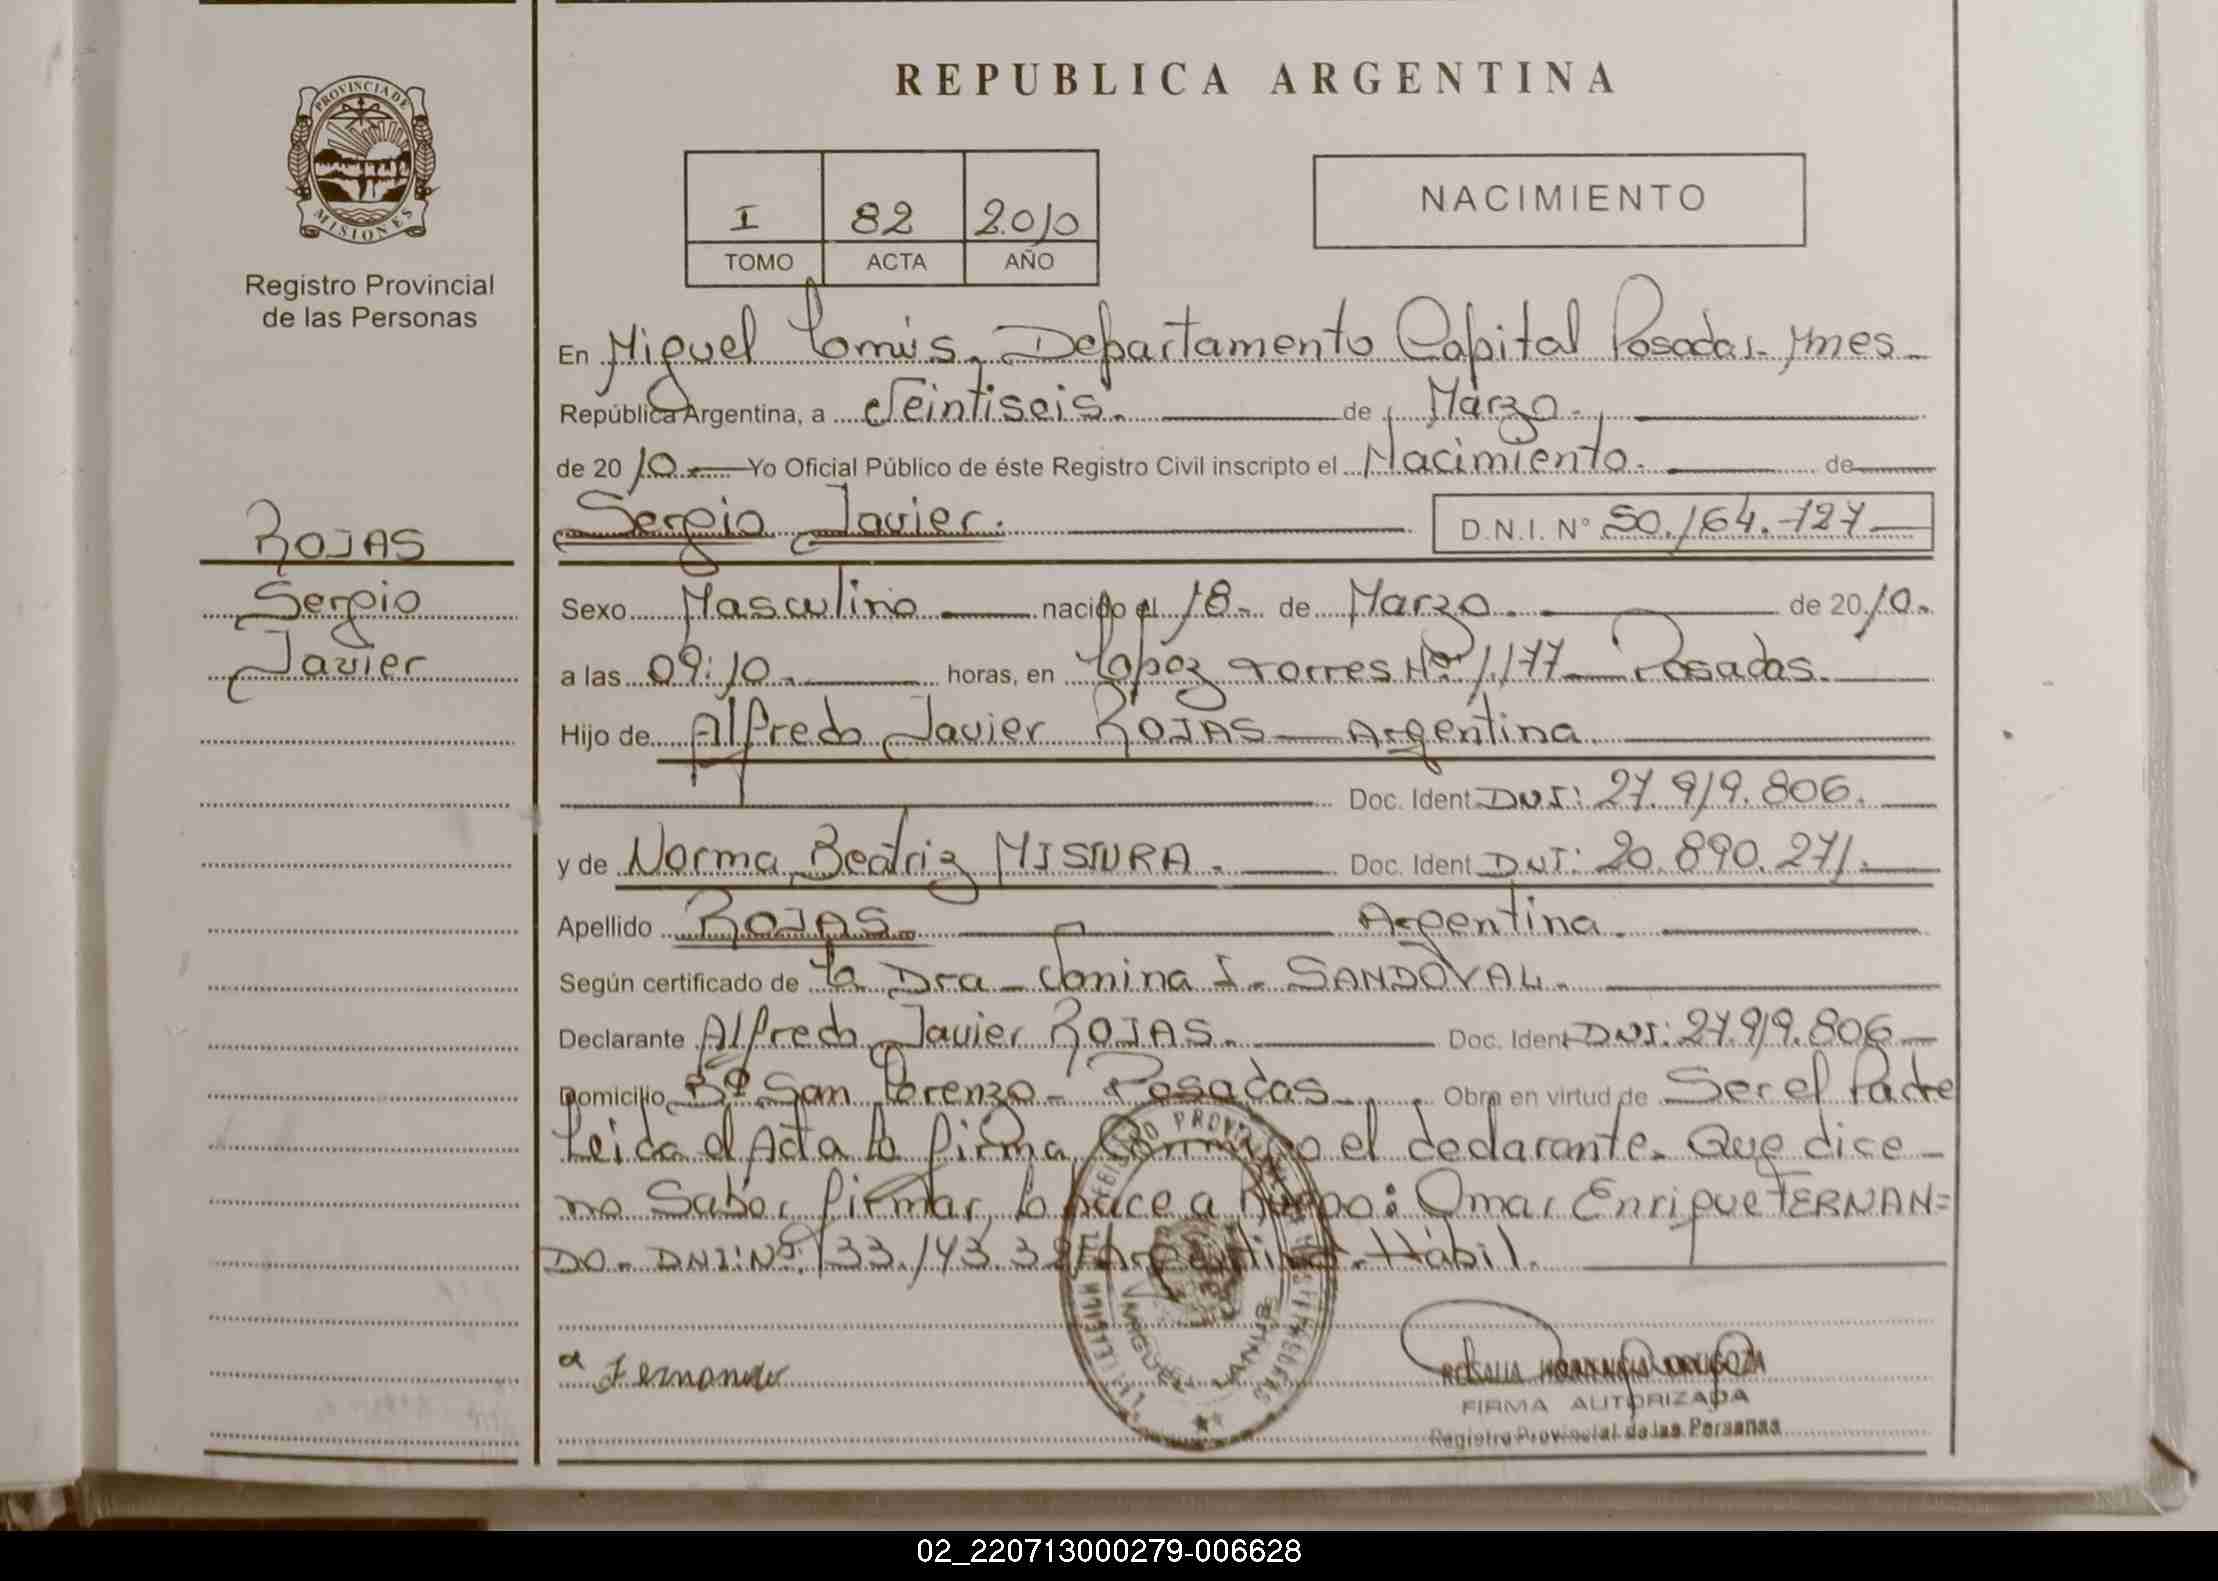 REPUBLICA ARGENTINA
PROVINCIA DE MISIONES
Registro Provincial
de las Personas
I 82 2010
TOMO ACTA AÑO
NACIMIENTO
En Miguel Lanús, Departamento Capital Posadas. Mnes
República Argentina, a Veintiseis. de Marzo.
de 2010. Yo Oficial Público de éste Registro Civil inscripto el Nacimiento. de
ROJAS
Sergio
Javier
Sergio Javier. D.N.I. N° 50.164.127
Sexo Masculino nacido el 18 de Marzo. de 2010.
a las 09:10 horas, en López Torres Nº 1.177 Posadas.
Hijo de Alfredo Javier ROJAS Argentina
Doc. Ident DNI: 27.919.806.
y de Norma Beatriz MISTURA. Doc. Ident DNI: 20.890.271.
Apellido ROJAS. Argentina.
Según certificado de la Dra - Janina I. SANDOVAL.
Declarante Alfredo Javier ROJAS. Doc. Ident DNI: 27.919.806
Domicilio Bº San Lorenzo - Posadas. Obra en virtud de Ser el Padre
Leida el Acta la firma Conmigo el declarante. Que dice
no Saber firmar, lo hace a Ruego: Omar Enrique FERNAN=
DO - DNI: Nº 33.143. Argentina. Hábil.
a Fernando
FIRMA AUTORIZADA
Registro Provincial de las Personas
02_220713000279-006628